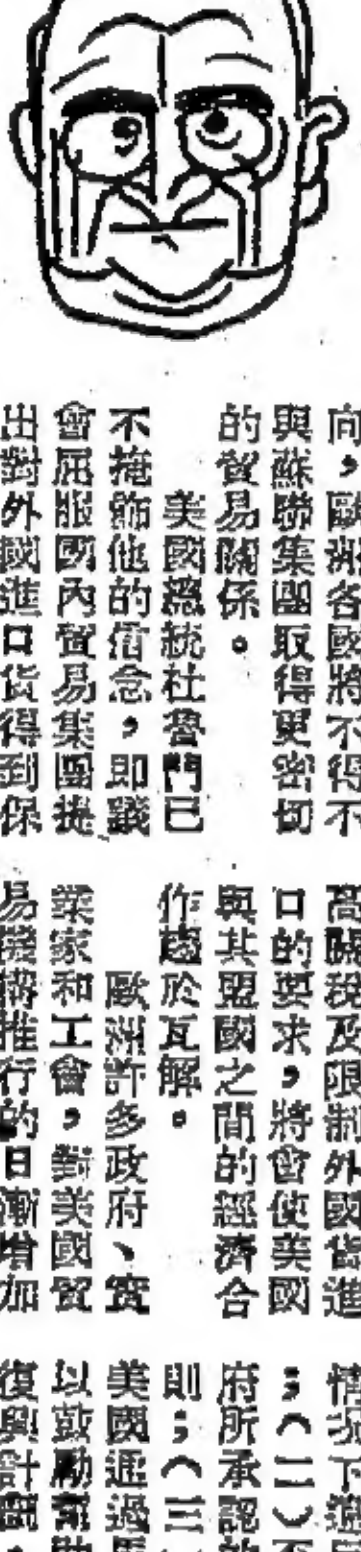 向，歐洲各國將不得不
與蘇聯集團取得更密切
的貿易關係。
美國總統杜魯門已
不掩飾他的信念，即議
會屈服國內貿易集團提
出對外國進口貨得到保
高關稅及限制外國貨進
口的要求，將會使美國
與其盟國之間的經濟合
作趨於瓦解。
歐洲許多政府、實
業家和工會，對美國貿
易機構推行的日漸增加
情況下
；（二）不
府所承認
則；（三）
美國通過
以鼓勵
復興計劃，